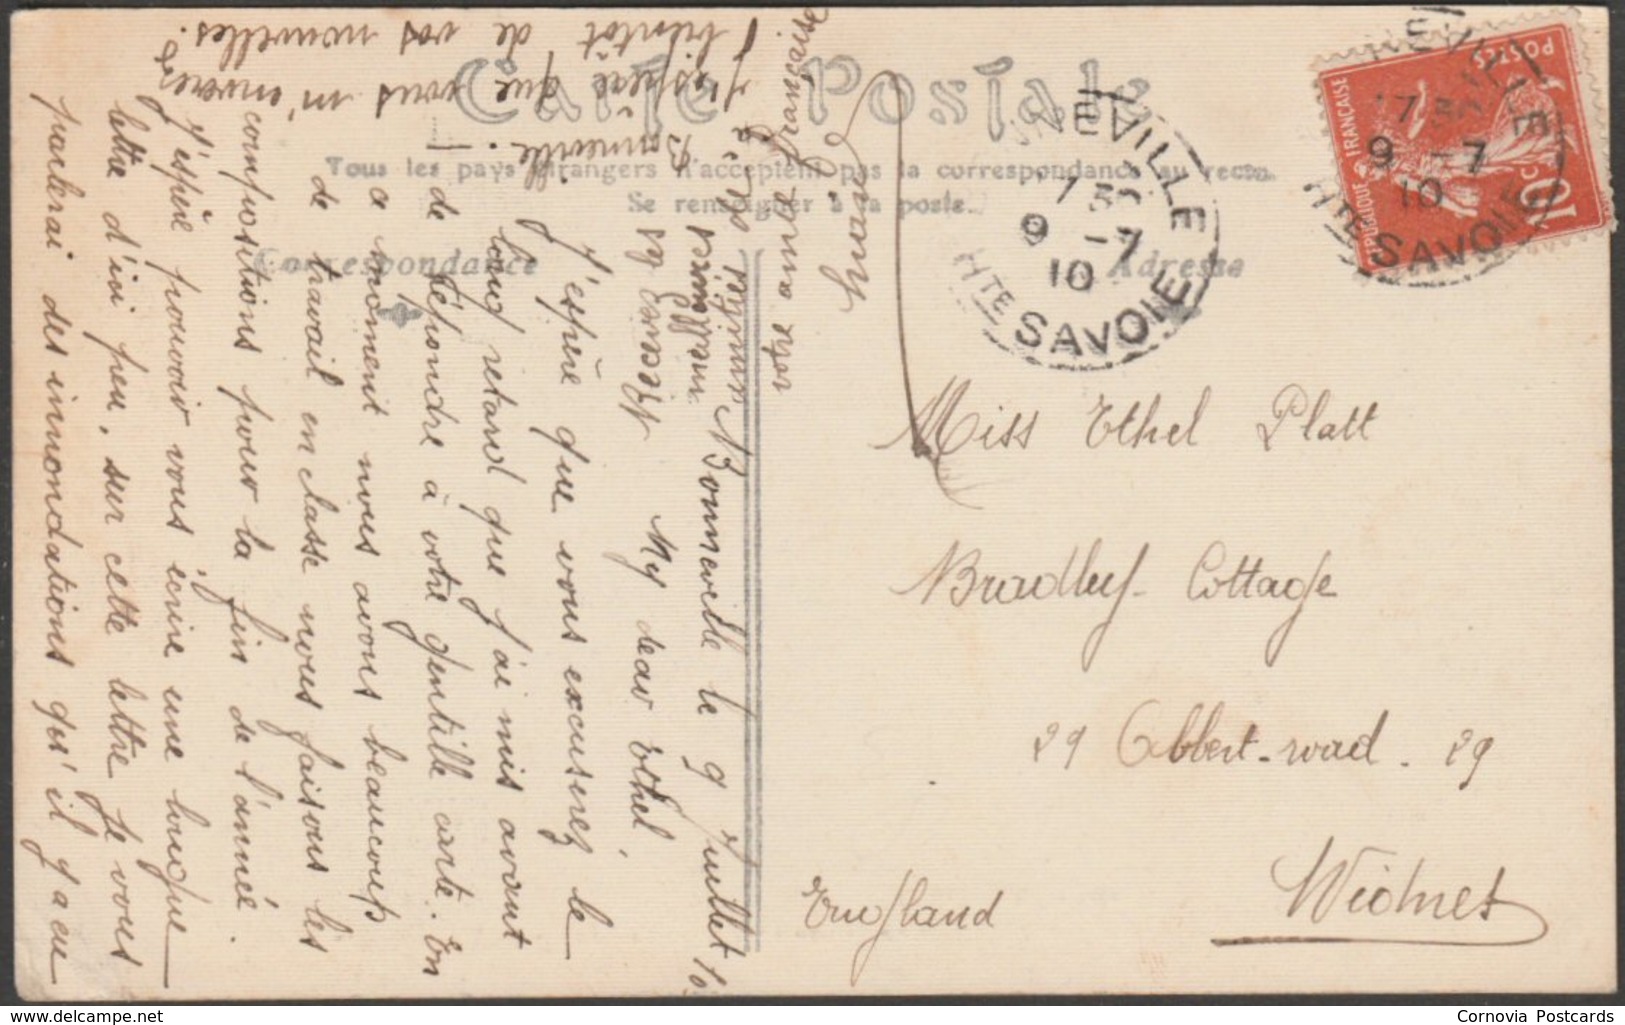 Carte Postale
Tous les pays étrangers n'acceptent pas la correspondance au recto.
Se renseigner à la poste.
Correspondance
Adresse
Bonneville le 9 Juillet 10
My dear Ethel
J'espère que vous excuserez le
long retard que j'ai mis avant
de répondre à votre gentille carte. En
ce moment nous avons beaucoup
de travail en classe nous faisons les
compositions pour la fin de l'année.
J'espère pouvoir vous écrire une longue
lettre d'ici peu, sur cette lettre je vous
parlerai des innondations qu'il y a eu
à Bonneville.
J'espère que vous m'enverrez
bientôt de vos nouvelles.
Recevez les
meilleurs
votre amie Françoise
Miss Ethel Platt
Bradley Cottage
29 Abbert-road. 29
Widnes
England
NEVILLE
17 30
9 -7
10
HTE SAVOIE
EVILLE
17 30
9 -7
10
HTE SAVOIE
POSTES
REPUBLIQUE FRANCAISE
10 C
Cornovia Postcards